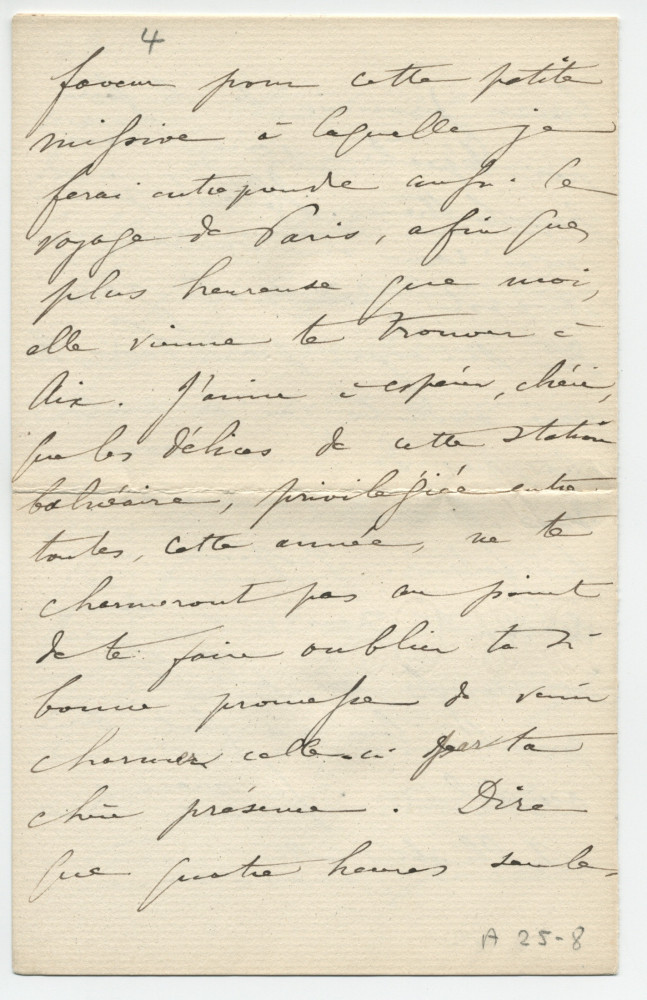 4
faveur pour cette petite
missive à laquelle je
ferai entreprendre aussi le
voyage de Paris, afin que,
plus heureuse que moi,
elle vienne te trouver à
Aix. J'aime à espérer, chérie,
que les délices de cette station
balnéaire, privilégiée entre
toutes, cette année, ne te
charmeront pas au point
de te faire oublier ta si
bonne promesse de venir
charmer celle-ci par ta
chère présence. Dire
que quatre heures seule-
A 25-8